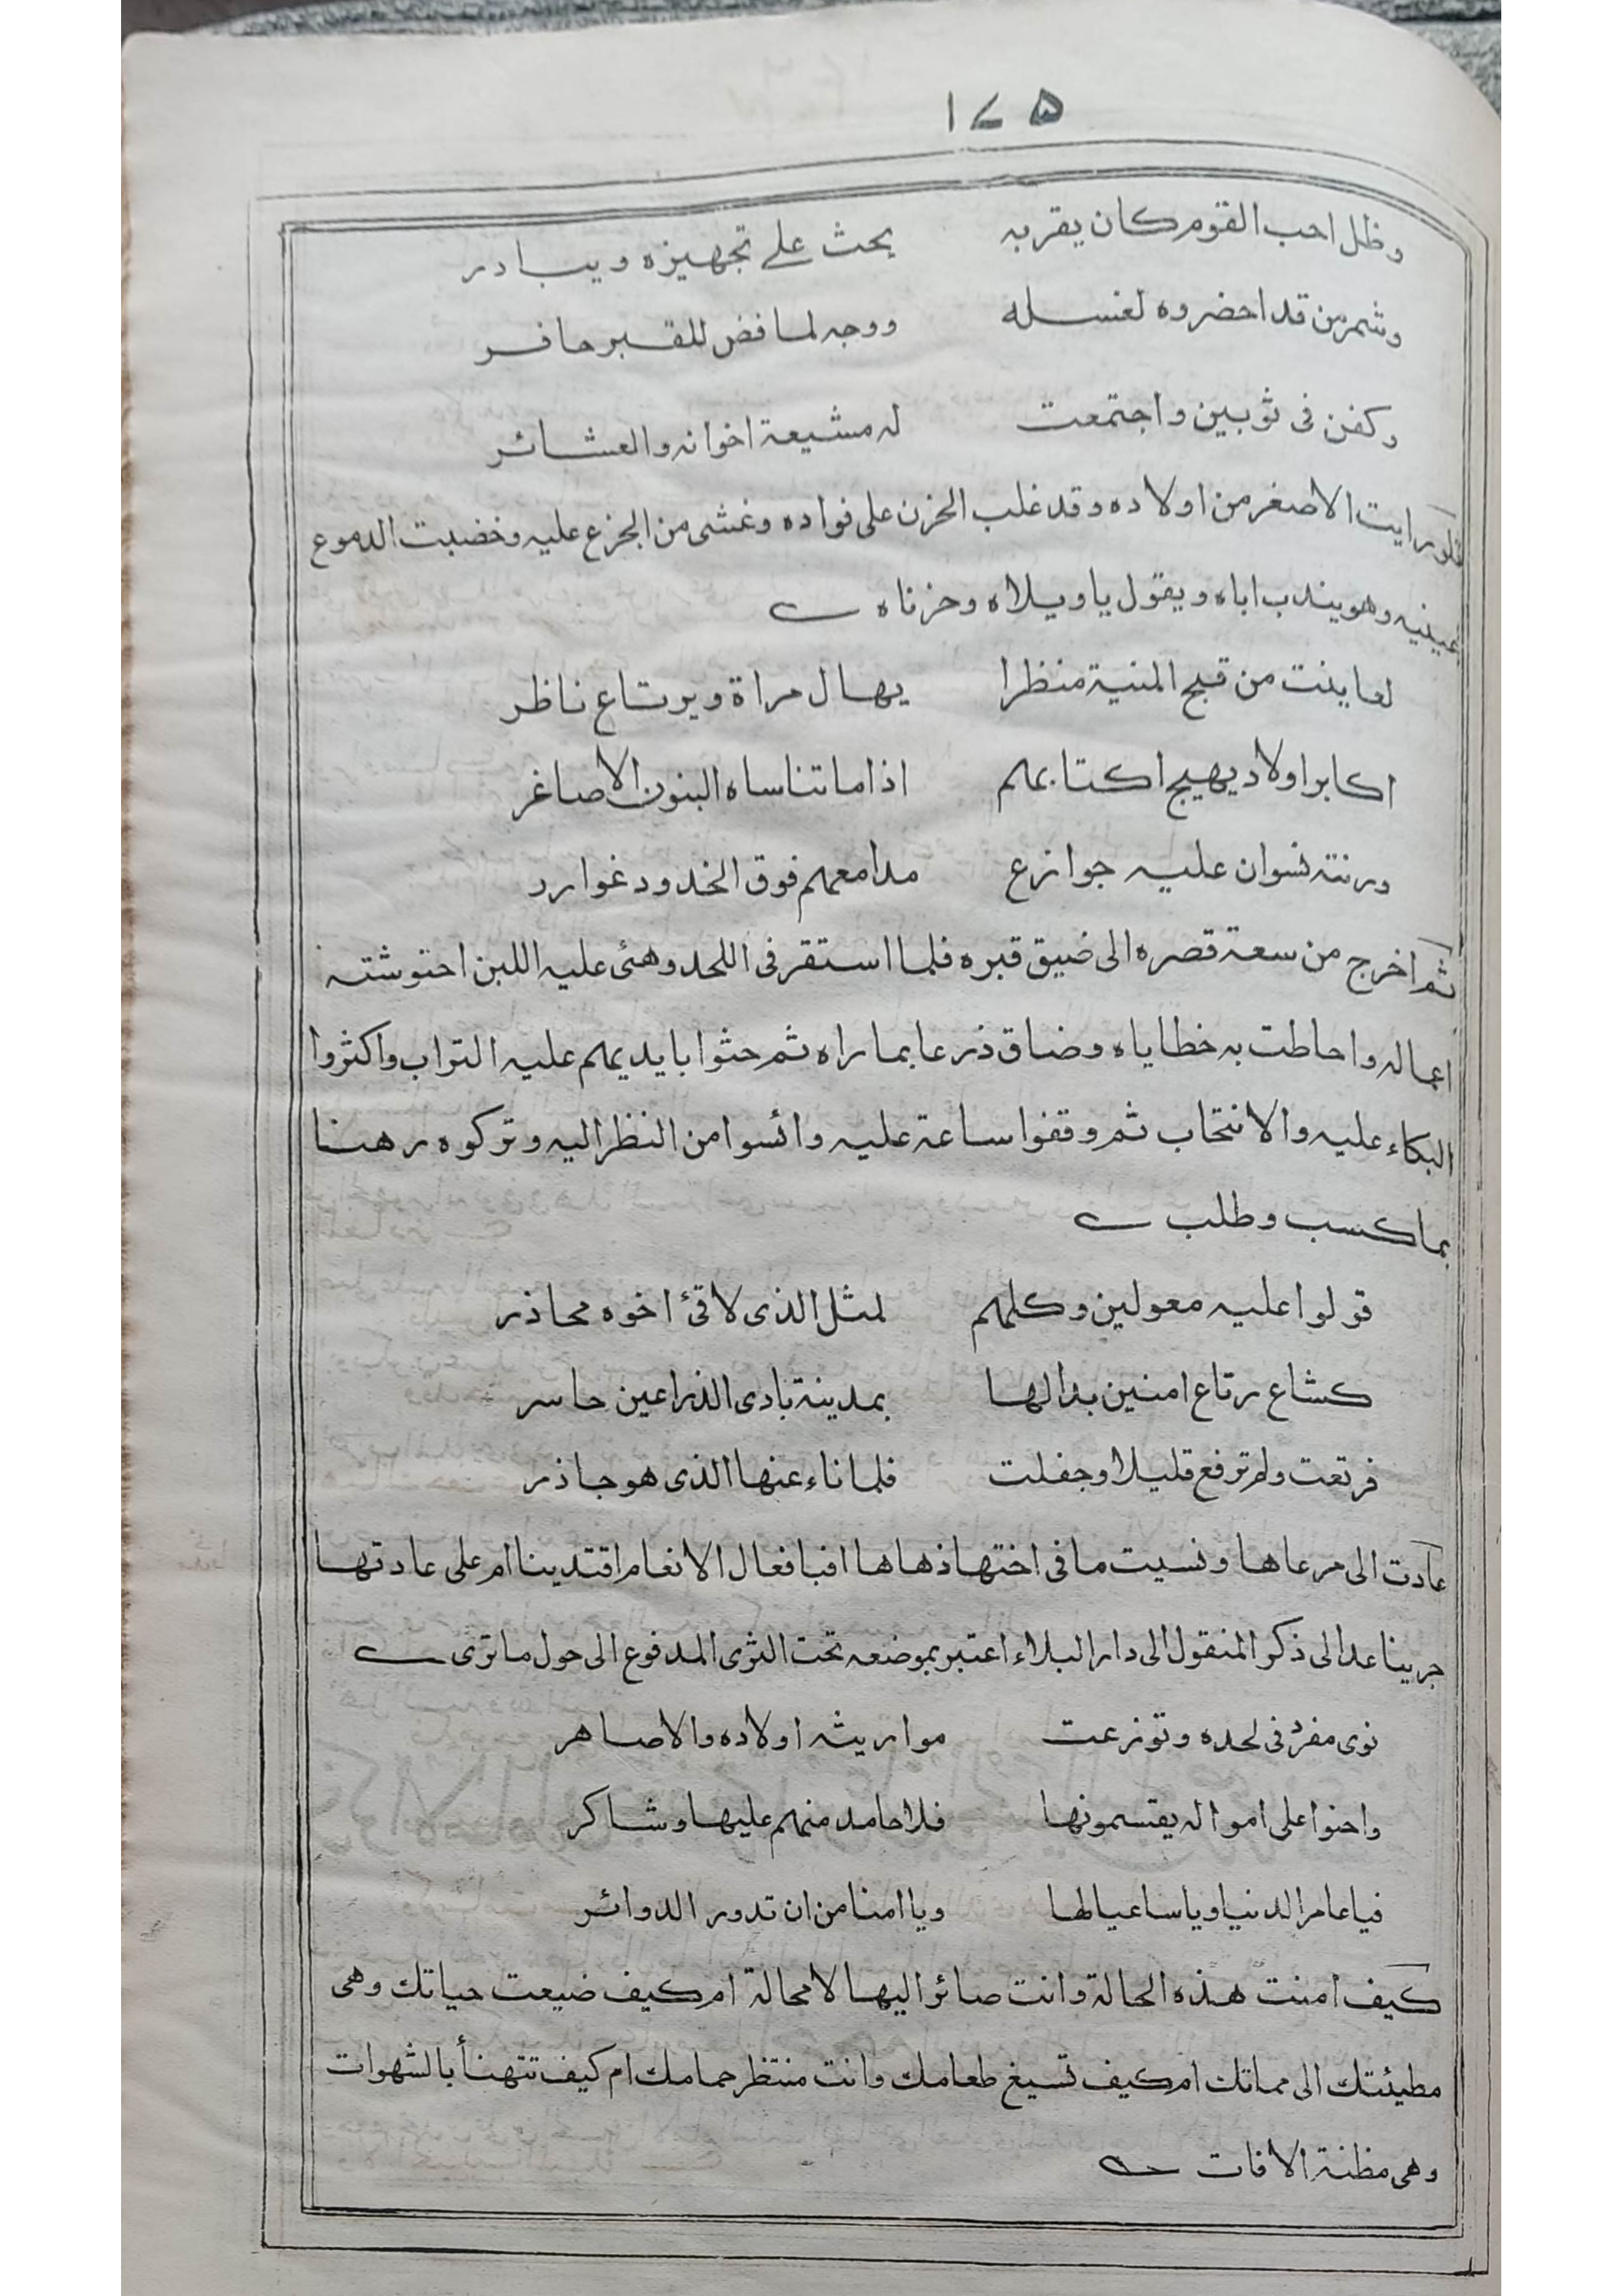 ١٧٥
وظل احب القوم كان يقربه يحث على تجهيزه ويبادر
وشمر من قد احضروه لغسله ووجه لما فض للقبر حافر
وكفن فى ثوبين واجتمعت له مشيعة اخوانه والعشائر
فلو رايت الاصغر من اولاده وقد غلب الحزن على فواده وغشى من الجزع عليه وخضبت الدموع
عينيه وهو يندب اباه ويقول يا ويلاه وحزناه
لعاينت من قبح المنية منظرا يهال مراة ويرتاع ناظر
اكابر اولاد يهيج اكتابهم اذا ما تناساه البنون الاصاغر
ورنته نسوان عليه جوازع مدامعهم فوق الخدود غوارد
ثم اخرج من سعة قصره الى ضيق قبره فلما استقر فى اللحد وهئى عليه اللبن احتوشته
اعماله واحاطت به خطاياه وضاق ذرعا بما راه ثم حثوا بايديهم عليه التراب واكثروا
البكاء عليه والانتحاب ثم وقفوا ساعة عليه وائسوا من النظر اليه وتركوه رهنا
بما كسب وطلب
قولوا عليه معولين وكلهم لمثل الذى لاقئ اخوه محاذر
كشاع رتاع امنين بدالها بمدينة بادى الذراعين حاسر
فرتعت ولم ترفع قليلا وجفلت فلما ناء عنها الذى هو جاذر
عادت الى مرعاها ونسيت ما فى اختها ذهاها افبافعال الانعام اقتدينا ام على عادتها
جرينا عد الى ذكر المنقول الى دار البلاء اعتبر بموضعه تحت الثرى المدفوع الى حول ما ترى
نوى مفرد فى لحده وتوزعت مواريثه اولاده والاصاهر
واحنوا على امواله يقتسمونها فلا حامد منهم عليها وشاكر
فيا عامر الدنيا ويا ساعيا لها ويا امنا من ان تدور الدوائر
كيف امنت هذه الحالة وانت صائر اليها لا محالة ام كيف ضيعت حياتك وهى
مطيئتك الى مماتك ام كيف تسيغ طعامك وانت منتظر حمامك ام كيف تتهنأ بالشهوات
وهى مظنة الافات